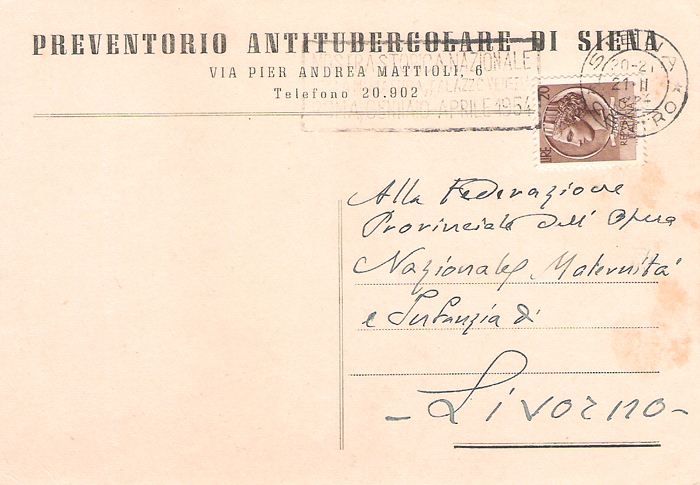 PREVENTORIO ANTITUBERCOLARE DI SIENA
VIA PIER ANDREA MATTIOLI, 6
Telefono 20.902
MOSTRA STORICA NAZIONALE
APRILE 1954
SIENA
20-21
21 II
LIRE 20
Alla Federazione
Provinciale dell' Opera
Nazionale Maternità
e Infanzia di
- Livorno -